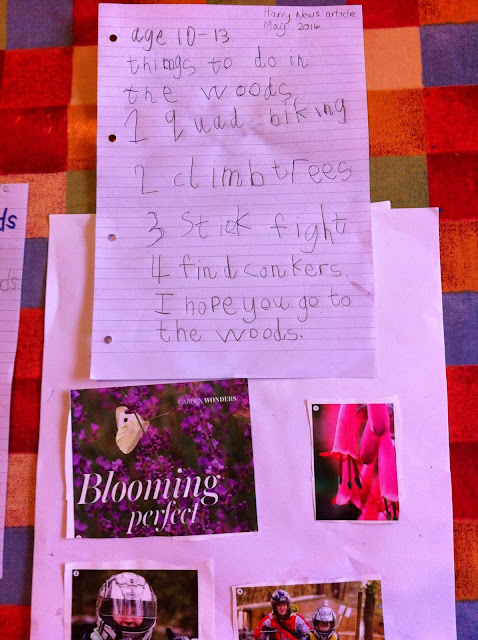 Harry News article
May 2014
age 10-13
things to do in
the woods
1 quad biking
2 climb trees
3 stick fight
4 find conkers.
I hope you go to
the woods.
ds
ds
GARDEN WONDERS
Blooming
perfect